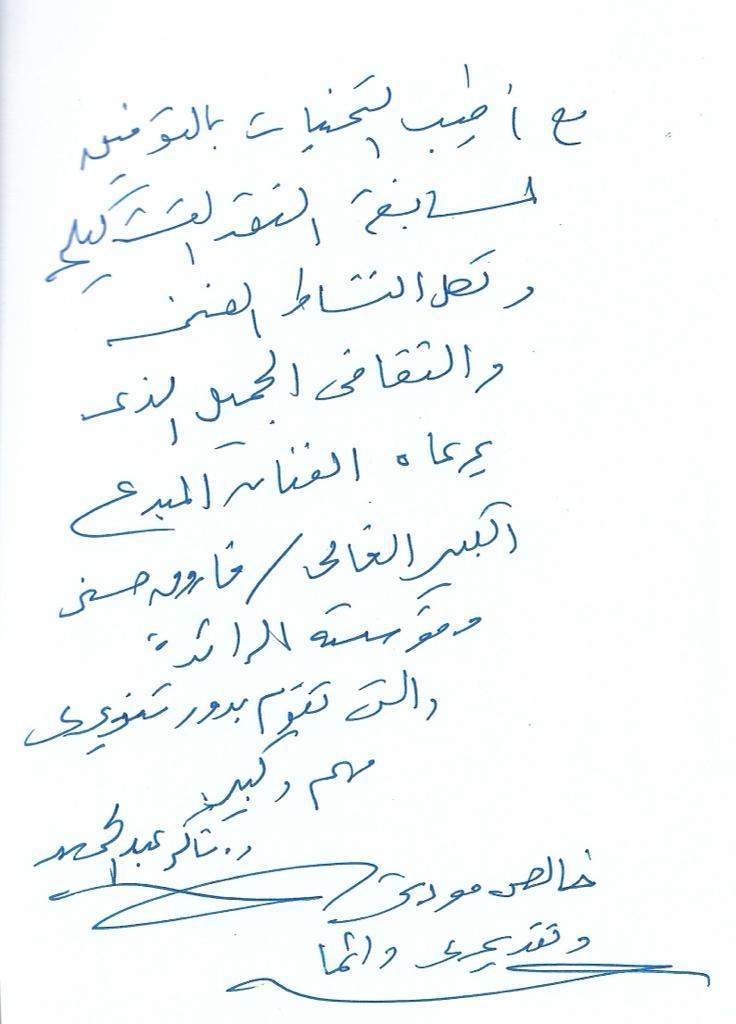 مع أطيب التمنيات بالتوفيق
لمسابقة النقد التشكيلي
ولكل النشاط الفني
والثقافى الجميل الذى
يرعاه الفنان المبدع
الكبير الغالى / فاروق حسنى
ومؤسسته الرائدة
والتى تقوم بدور تنويرى
مهم وكبير
د. شاكر عبد الحميد
خالص مودتى
وتقديرى دائما